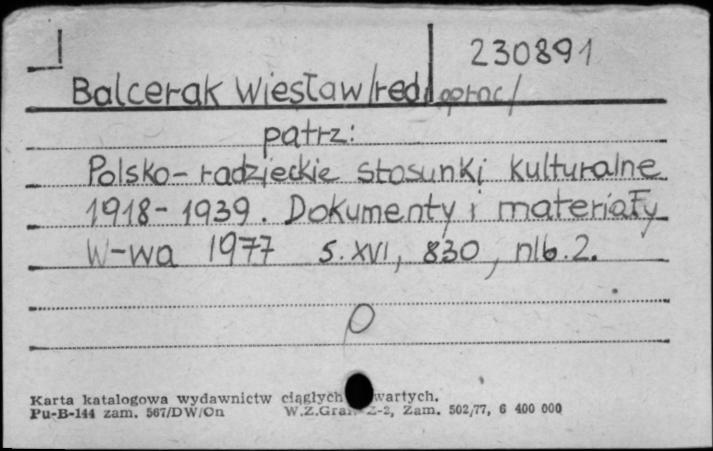 230891
Balcerak Wiesław/red. oprac/
patrz:
Polsko-radzieckie stosunki kulturalne
1918-1939. Dokumenty i materiały
W-wa 1977 s. XVI, 830, nlb. 2.
Karta katalogowa wydawnictw ciągłych wartych.
Pu-B-144 zam. 567/DW/On W.Z.Graf. Z-2, Zam. 502/77, 6 400 000